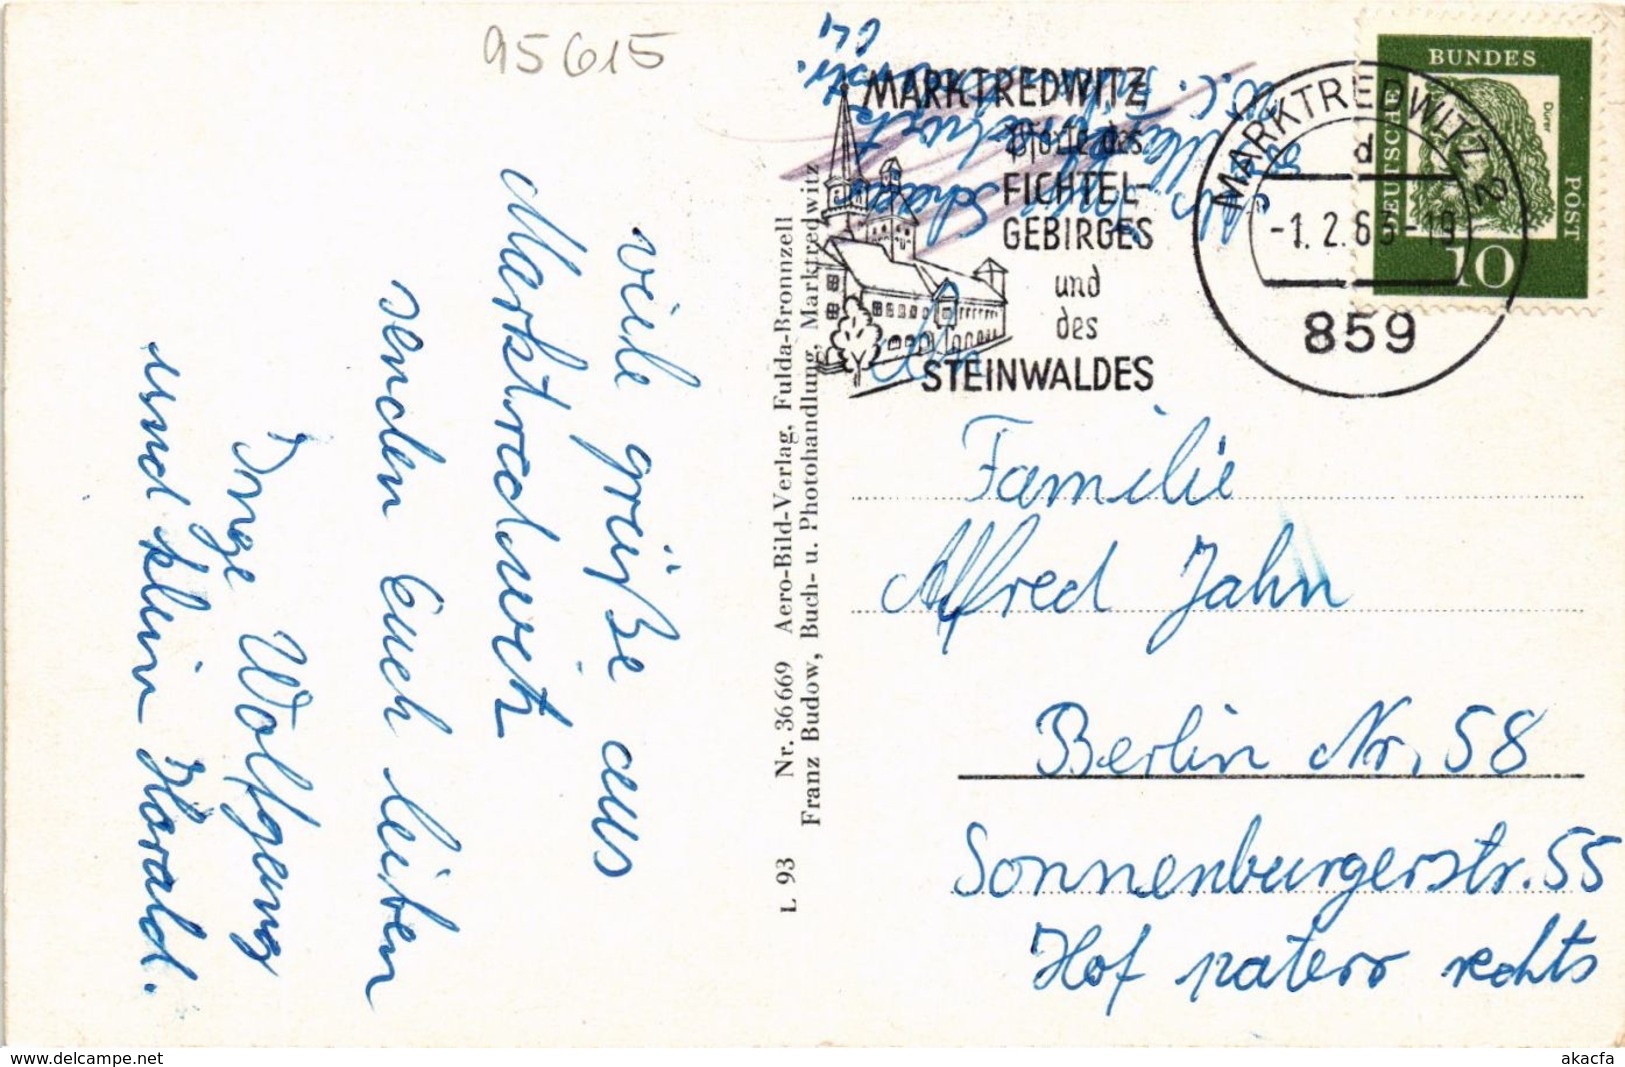 95615
viele grüße aus
Marktredwitz
senden Euch lieben
Inge Wolfgang
und klein Harald.
L 93 Nr. 36 669 Aero-Bild-Verlag, Fulda-Bronnzell
Franz Budow, Buch- u. Photohandlung, Marktredwitz
MARKTREDWITZ
Pforte des
FICHTEL-
GEBIRGES
und
des
STEINWALDES
MARKTREDWITZ 2
d
-1.2.63-19
859
DEUTSCHE BUNDES POST
Dürer
10
An
Familie
Alfred Jahn
Berlin Nr. 58
Sonnenburgerstr. 55
Hof paterr rechts
akacfa